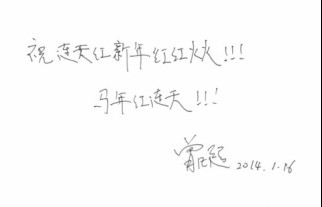 祝连天红新年红红火火!!!
马年红连天!!!
2014.1.16